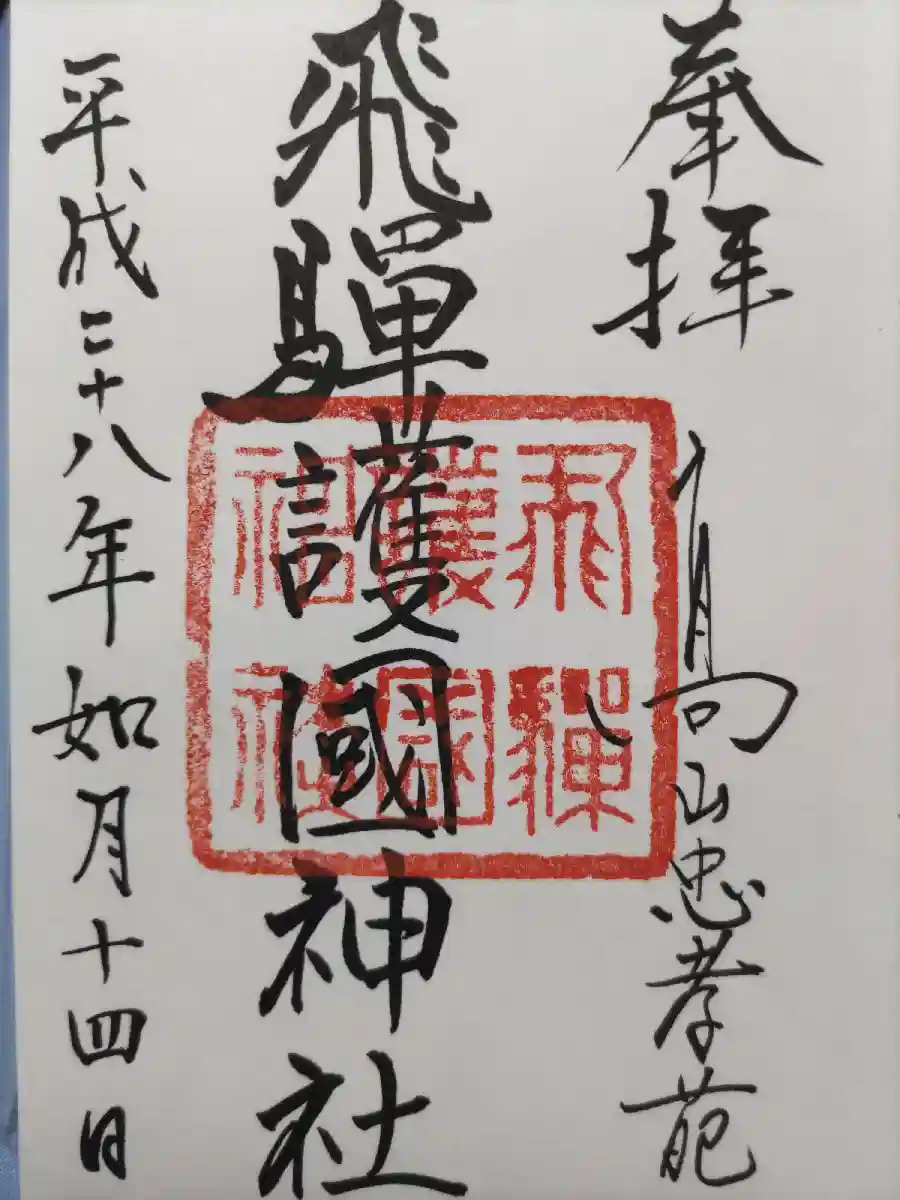 奉拝
高山忠孝苑
飛驒護國神社
飛驒
護國
神社
平成二十八年如月十四日